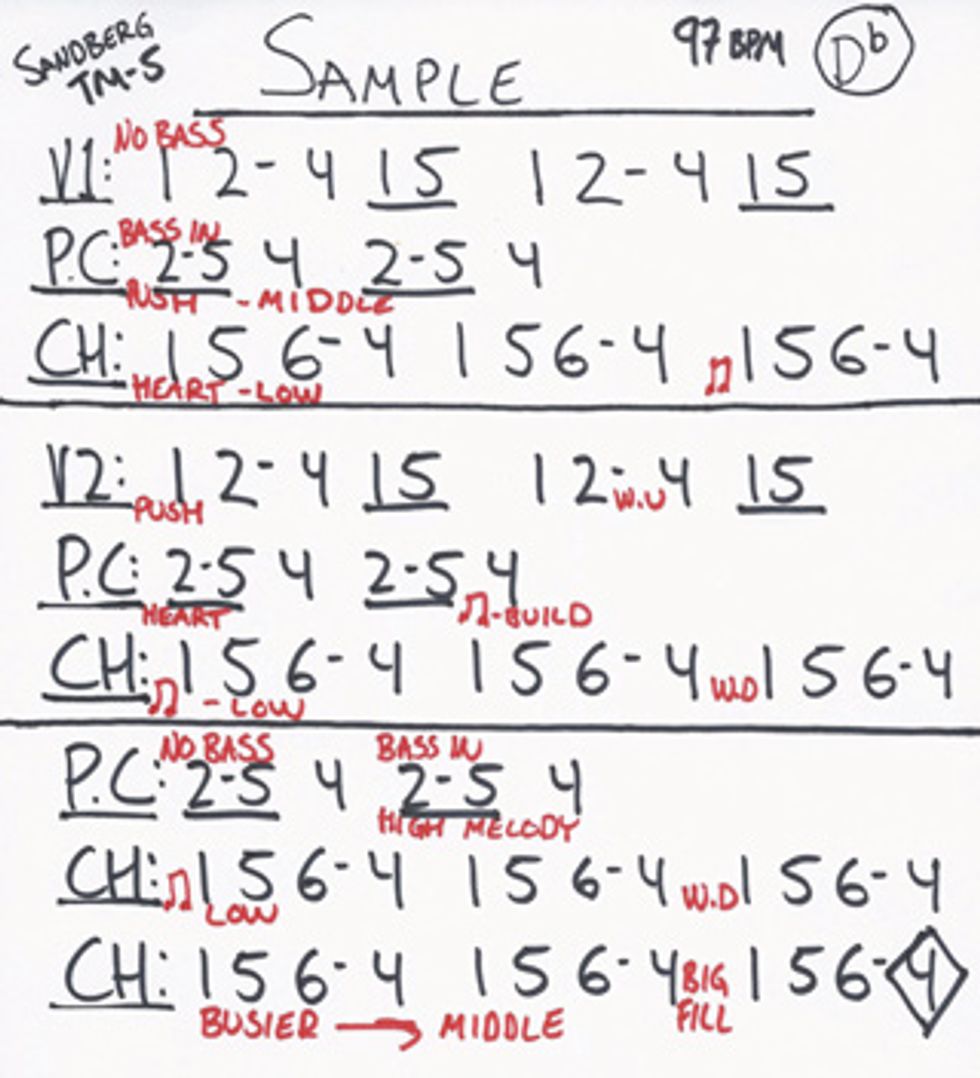 SANDBERG TM-5 SAMPLE 97 BPM Db
NO BASS
V1: 1 2- 4 15 1 2- 4 15
BASS IN
P.C: 2-5 4 2-5 4
PUSH - MIDDLE
CH: 1 5 6- 4 1 5 6- 4 ♫ 1 5 6- 4
HEART - LOW
V2: 1 2- 4 15 1 2- W.U 4 15
PUSH
P.C: 2-5 4 2-5 4
HEART ♫-BUILD
CH: 1 5 6- 4 1 5 6- 4 W.D 1 5 6- 4
♫ - LOW
NO BASS BASS IN
P.C: 2-5 4 2-5 4
HIGH MELODY
CH: ♫ 1 5 6- 4 1 5 6- 4 W.D 1 5 6- 4
LOW
CH: 1 5 6- 4 1 5 6- 4 BIG FILL 1 5 6- 4
BUSIER → MIDDLE